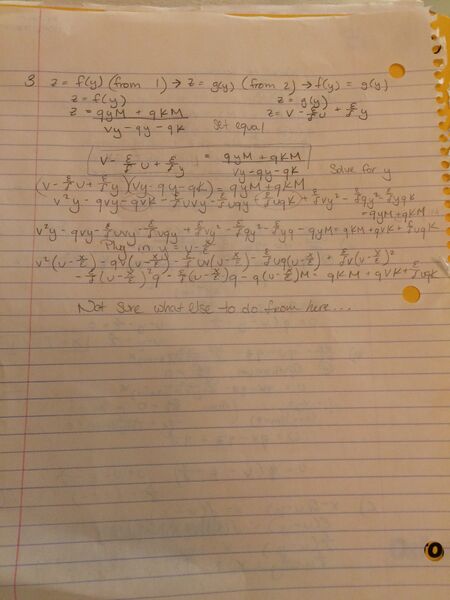 3 z = f(y) (from 1) → z = g(y) (from 2) → f(y) = g(y)
z = f(y) z = g(y)
z = qyM + qKM / vy - qy - qK Set equal z = v - ε/γ u + ε/γ y
v - ε/γ u + ε/γ y = qyM + qKM / vy - qy - qK Solve for y
(v - ε/γ u + ε/γ y)(vy - qy - qK) = qyM + qKM
v²y - qvy - qvK - ε/γ uvy - ε/γ uqy + ε/γ uqK + ε/γ vy² - ε/γ qy² - ε/γ yqK
= qyM + qKM
v²y - qvy - ε/γ uvy - ε/γ uqy + ε/γ vy² - ε/γ qy² - ε/γ yq - qyM = qKM + qvK + ε/γ uqK
Plug in y = u - x/ε
v²(u - x/ε) - qv(u - x/ε) - ε/γ uv(u - x/ε) - ε/γ uq(u - x/ε) + ε/γ v(u - x/ε)²
- ε/γ (u - x/ε)²q - ε/γ (u - x/ε)q - q(u - x/ε)M = qKM + qvK + ε/γ uqK
Not sure what else to do from here...